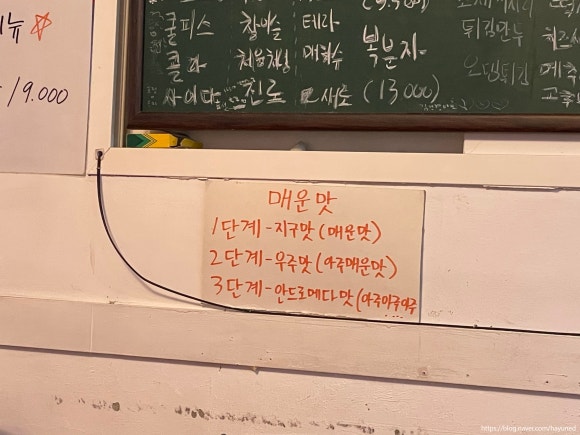 뉴 ☆
/9.000
쿨피스 참이슬 테라
콜라 처음처럼 매화수 복분자
사이다 진로 새로 (13000)
튀김만두
오뎅튀김
매운맛
1단계-지구맛(매운맛)
2단계-우주맛(아주매운맛)
3단계-안드로메다맛(아주아주아주